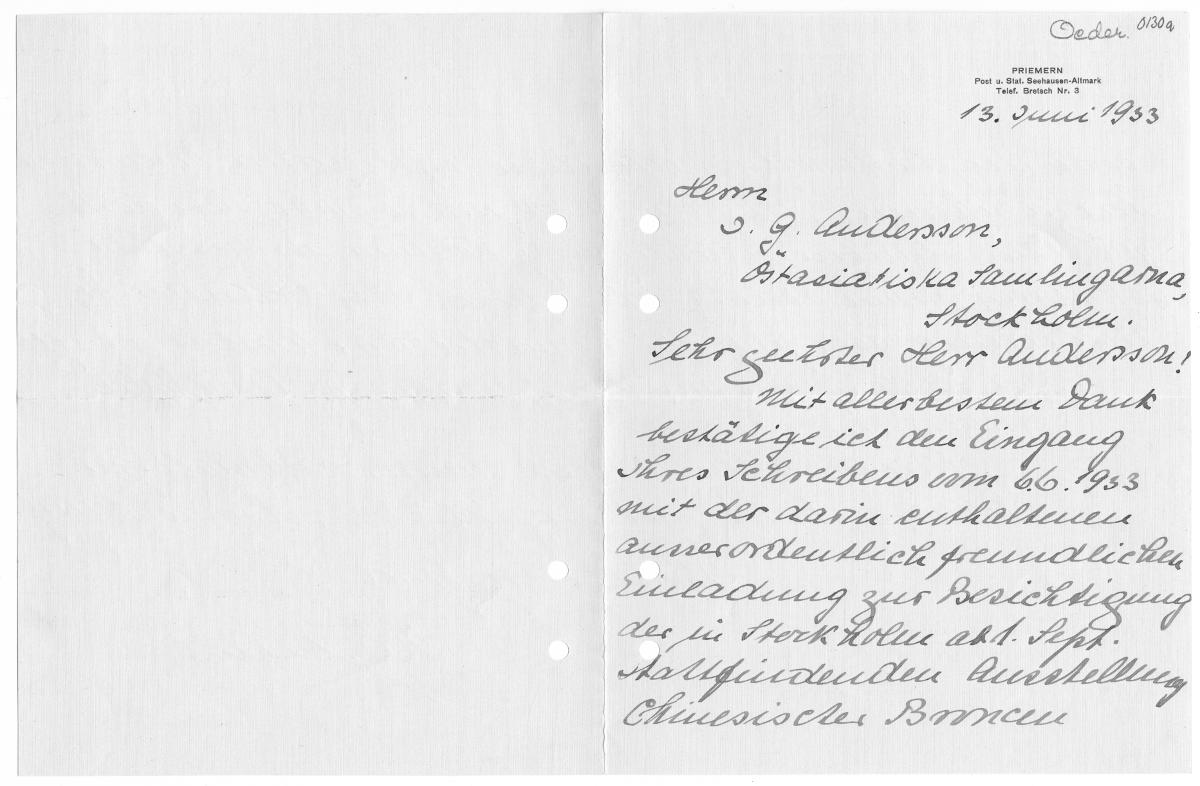 Oeder. 0130a
PRIEMERN
Post u. Stat. Seehausen-Altmark
Telef. Bretsch Nr. 3
13. Juni 1933
Herrn
J. G. Andersson,
Östasiatiska Samlingarna,
Stockholm.
Sehr geehrter Herr Andersson!
Mit allerbestem Dank
bestätige ich den Eingang
Ihres Schreibens vom 6.6.1933
mit der darin enthaltenen
ausserordentlich freundlichen
Einladung zur Besichtigung
der in Stockholm ab 1. Sept.
stattfindenden Ausstellung
Chinesischer Broncen